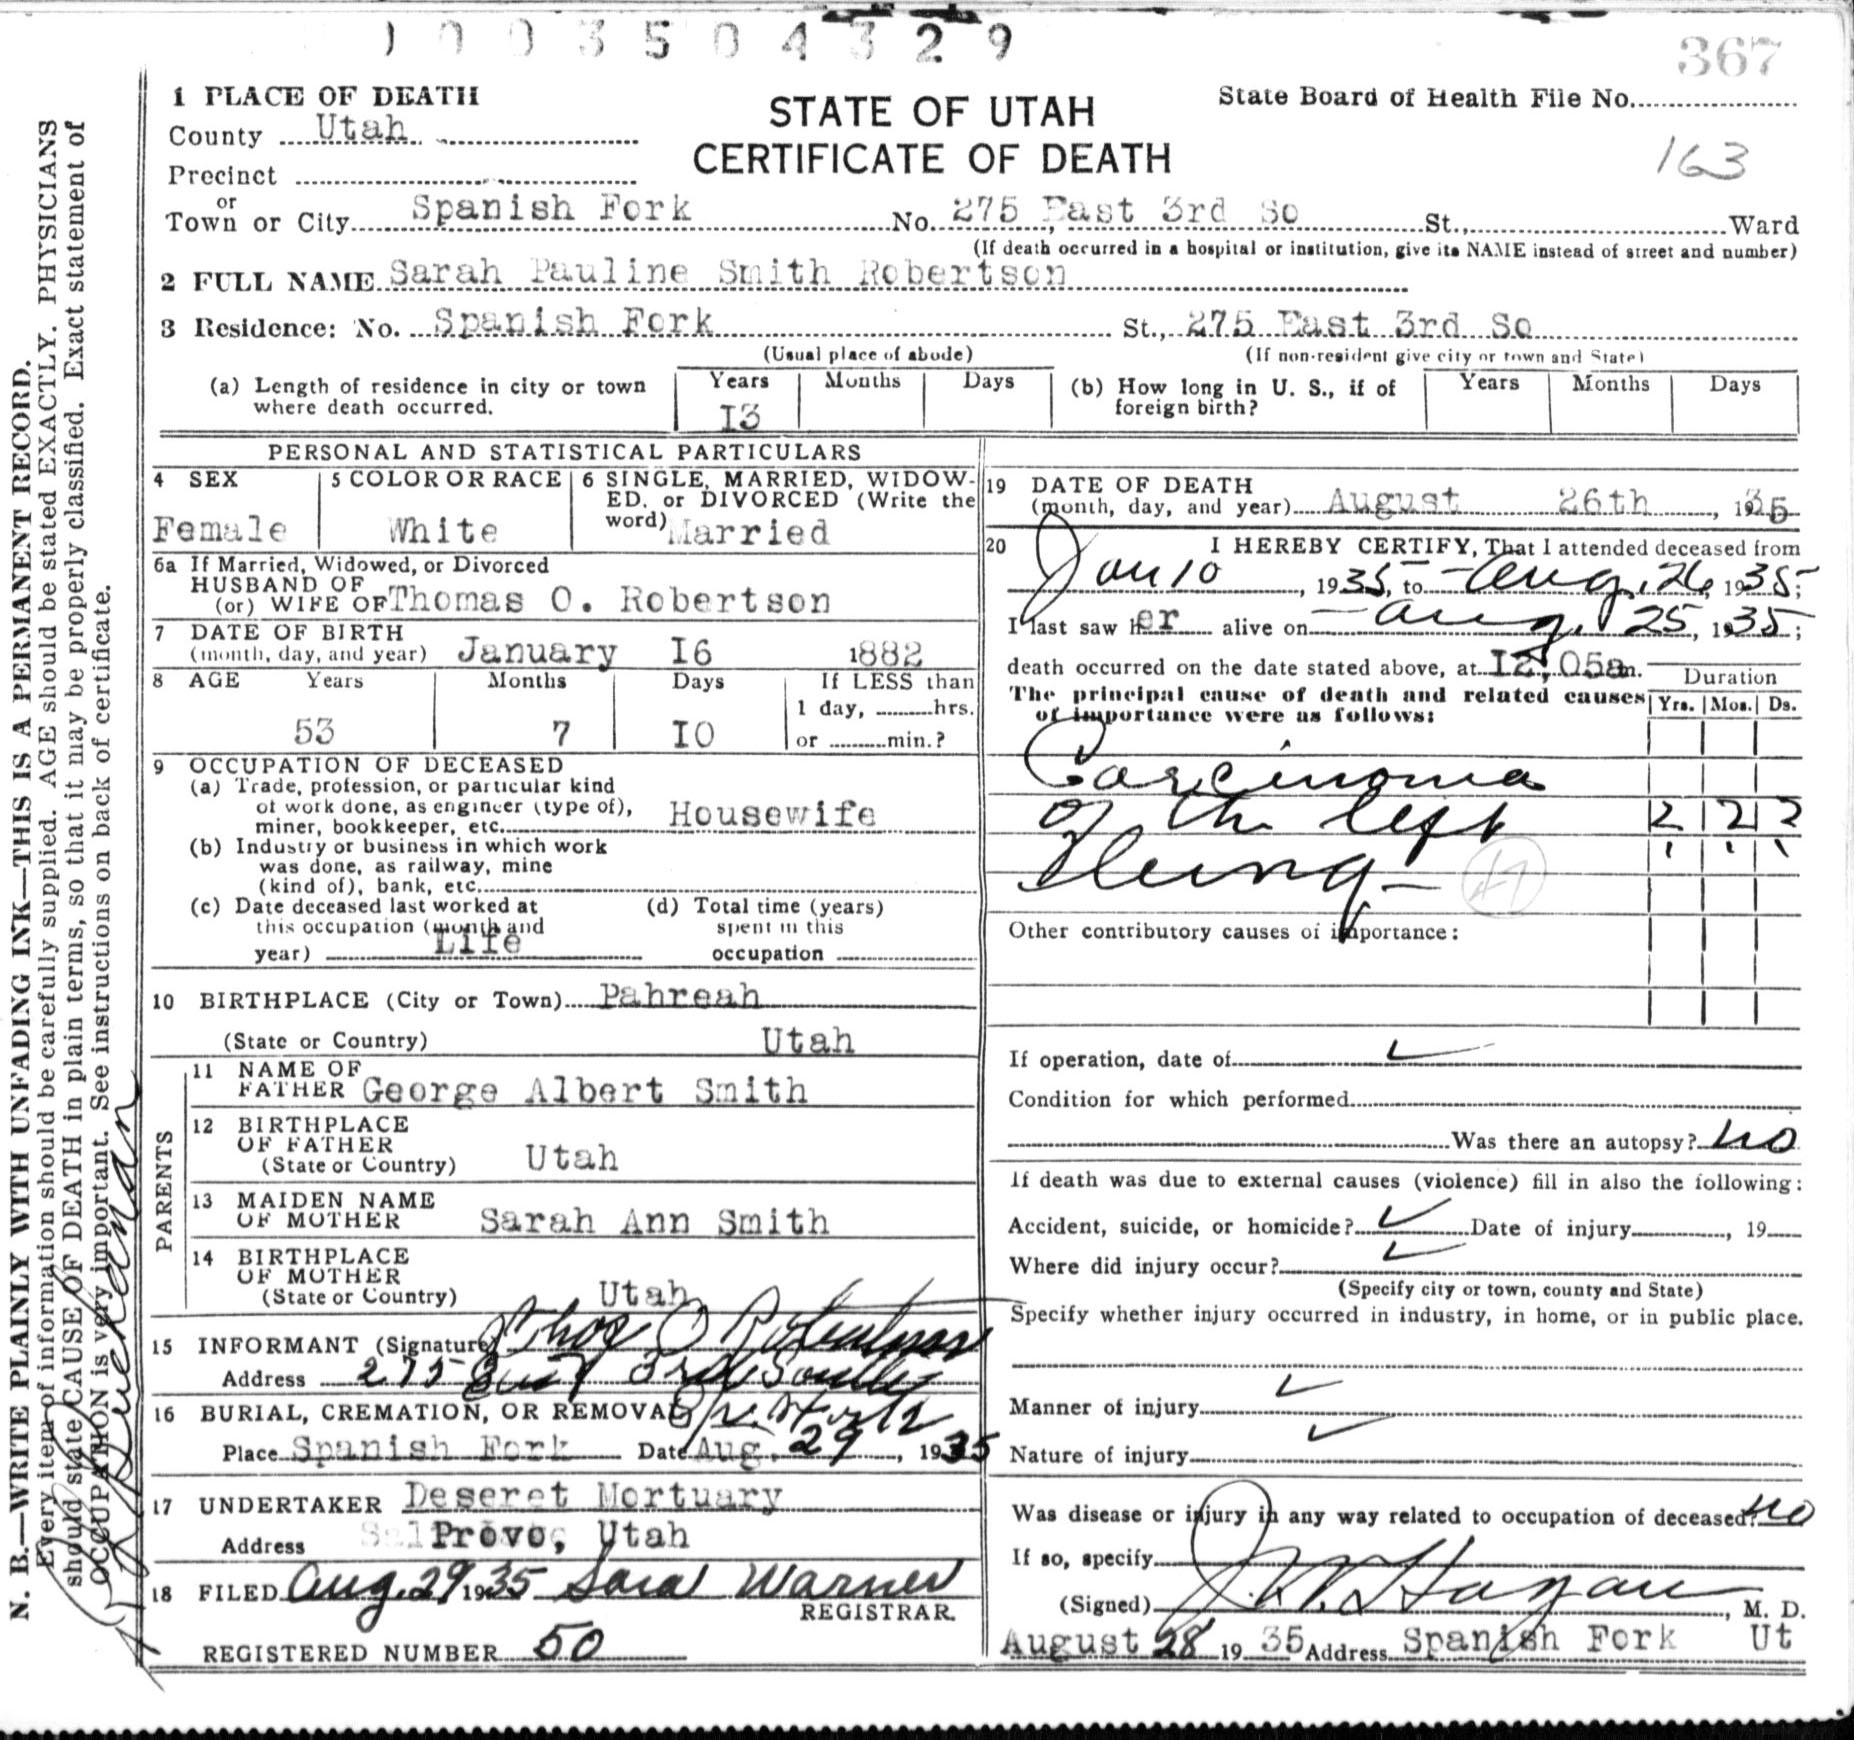 1 0 0 3 5 0 4 3 2 9
367
1 PLACE OF DEATH
STATE OF UTAH
CERTIFICATE OF DEATH
State Board of Health File No.
163
County Utah
Precinct
or
Town or City Spanish Fork No. 275 East 3rd So St., Ward
(If death occurred in a hospital or institution, give its NAME instead of street and number)
2 FULL NAME Sarah Pauline Smith Robertson
3 Residence: No. Spanish Fork St., 275 East 3rd So
(Usual place of abode) (If non-resident give city or town and State)
(a) Length of residence in city or town where death occurred. Years I3 Months Days (b) How long in U. S., if of foreign birth? Years Months Days
PERSONAL AND STATISTICAL PARTICULARS
4 SEX
Female
5 COLOR OR RACE
White
6 SINGLE, MARRIED, WIDOW-
ED, or DIVORCED (Write the
word) Married
6a If Married, Widowed, or Divorced
HUSBAND OF
(or) WIFE OF Thomas O. Robertson
7 DATE OF BIRTH
(month, day, and year) January I6 1882
8 AGE Years Months Days If LESS than
53 7 I0
1 day, hrs.
or min.?
9 OCCUPATION OF DECEASED
(a) Trade, profession, or particular kind
of work done, as engineer (type of),
miner, bookkeeper, etc. Housewife
(b) Industry or business in which work
was done, as railway, mine
(kind of), bank, etc.
(c) Date deceased last worked at
this occupation (month and
year) Life
(d) Total time (years)
spent in this
occupation
10 BIRTHPLACE (City or Town) Pahreah
(State or Country) Utah
PARENTS
11 NAME OF
FATHER George Albert Smith
12 BIRTHPLACE
OF FATHER
(State or Country) Utah
13 MAIDEN NAME
OF MOTHER Sarah Ann Smith
14 BIRTHPLACE
OF MOTHER
(State or Country) Utah
15 INFORMANT (Signature) Thos O Robertson
Address 275 East 3rd South
16 BURIAL, CREMATION, OR REMOVAL
Place Spanish Fork Date Aug. 29, 1935
17 UNDERTAKER Deseret Mortuary
Address Provo, Utah
18 FILED Aug. 29, 1935 Sara Warner
REGISTRAR.
REGISTERED NUMBER 50
19 DATE OF DEATH
(month, day, and year) August 26th, 1935
20 I HEREBY CERTIFY, That I attended deceased from
Jan 10, 1935, to Aug. 26, 1935;
I last saw her alive on Aug. 25, 1935;
death occurred on the date stated above, at I2,05a m.
Duration
The principal cause of death and related causes
of importance were as follows:
Yrs. Mos. Ds.
Carcinoma
of the left 2 2 2
lung
47
Other contributory causes of importance:
If operation, date of
Condition for which performed
Was there an autopsy? no
If death was due to external causes (violence) fill in also the following:
Accident, suicide, or homicide? Date of injury, 19
Where did injury occur?
(Specify city or town, county and State)
Specify whether injury occurred in industry, in home, or in public place.
Manner of injury
Nature of injury
Was disease or injury in any way related to occupation of deceased? no
If so, specify
(Signed) J. W. Hagan, M. D.
August 28 1935 Address Spanish Fork Ut
N. B.—WRITE PLAINLY WITH UNFADING INK—THIS IS A PERMANENT RECORD.
Every item of information should be carefully supplied. AGE should be stated EXACTLY. PHYSICIANS
should state CAUSE OF DEATH in plain terms, so that it may be properly classified. Exact statement of
OCCUPATION is very important. See instructions on back of certificate.